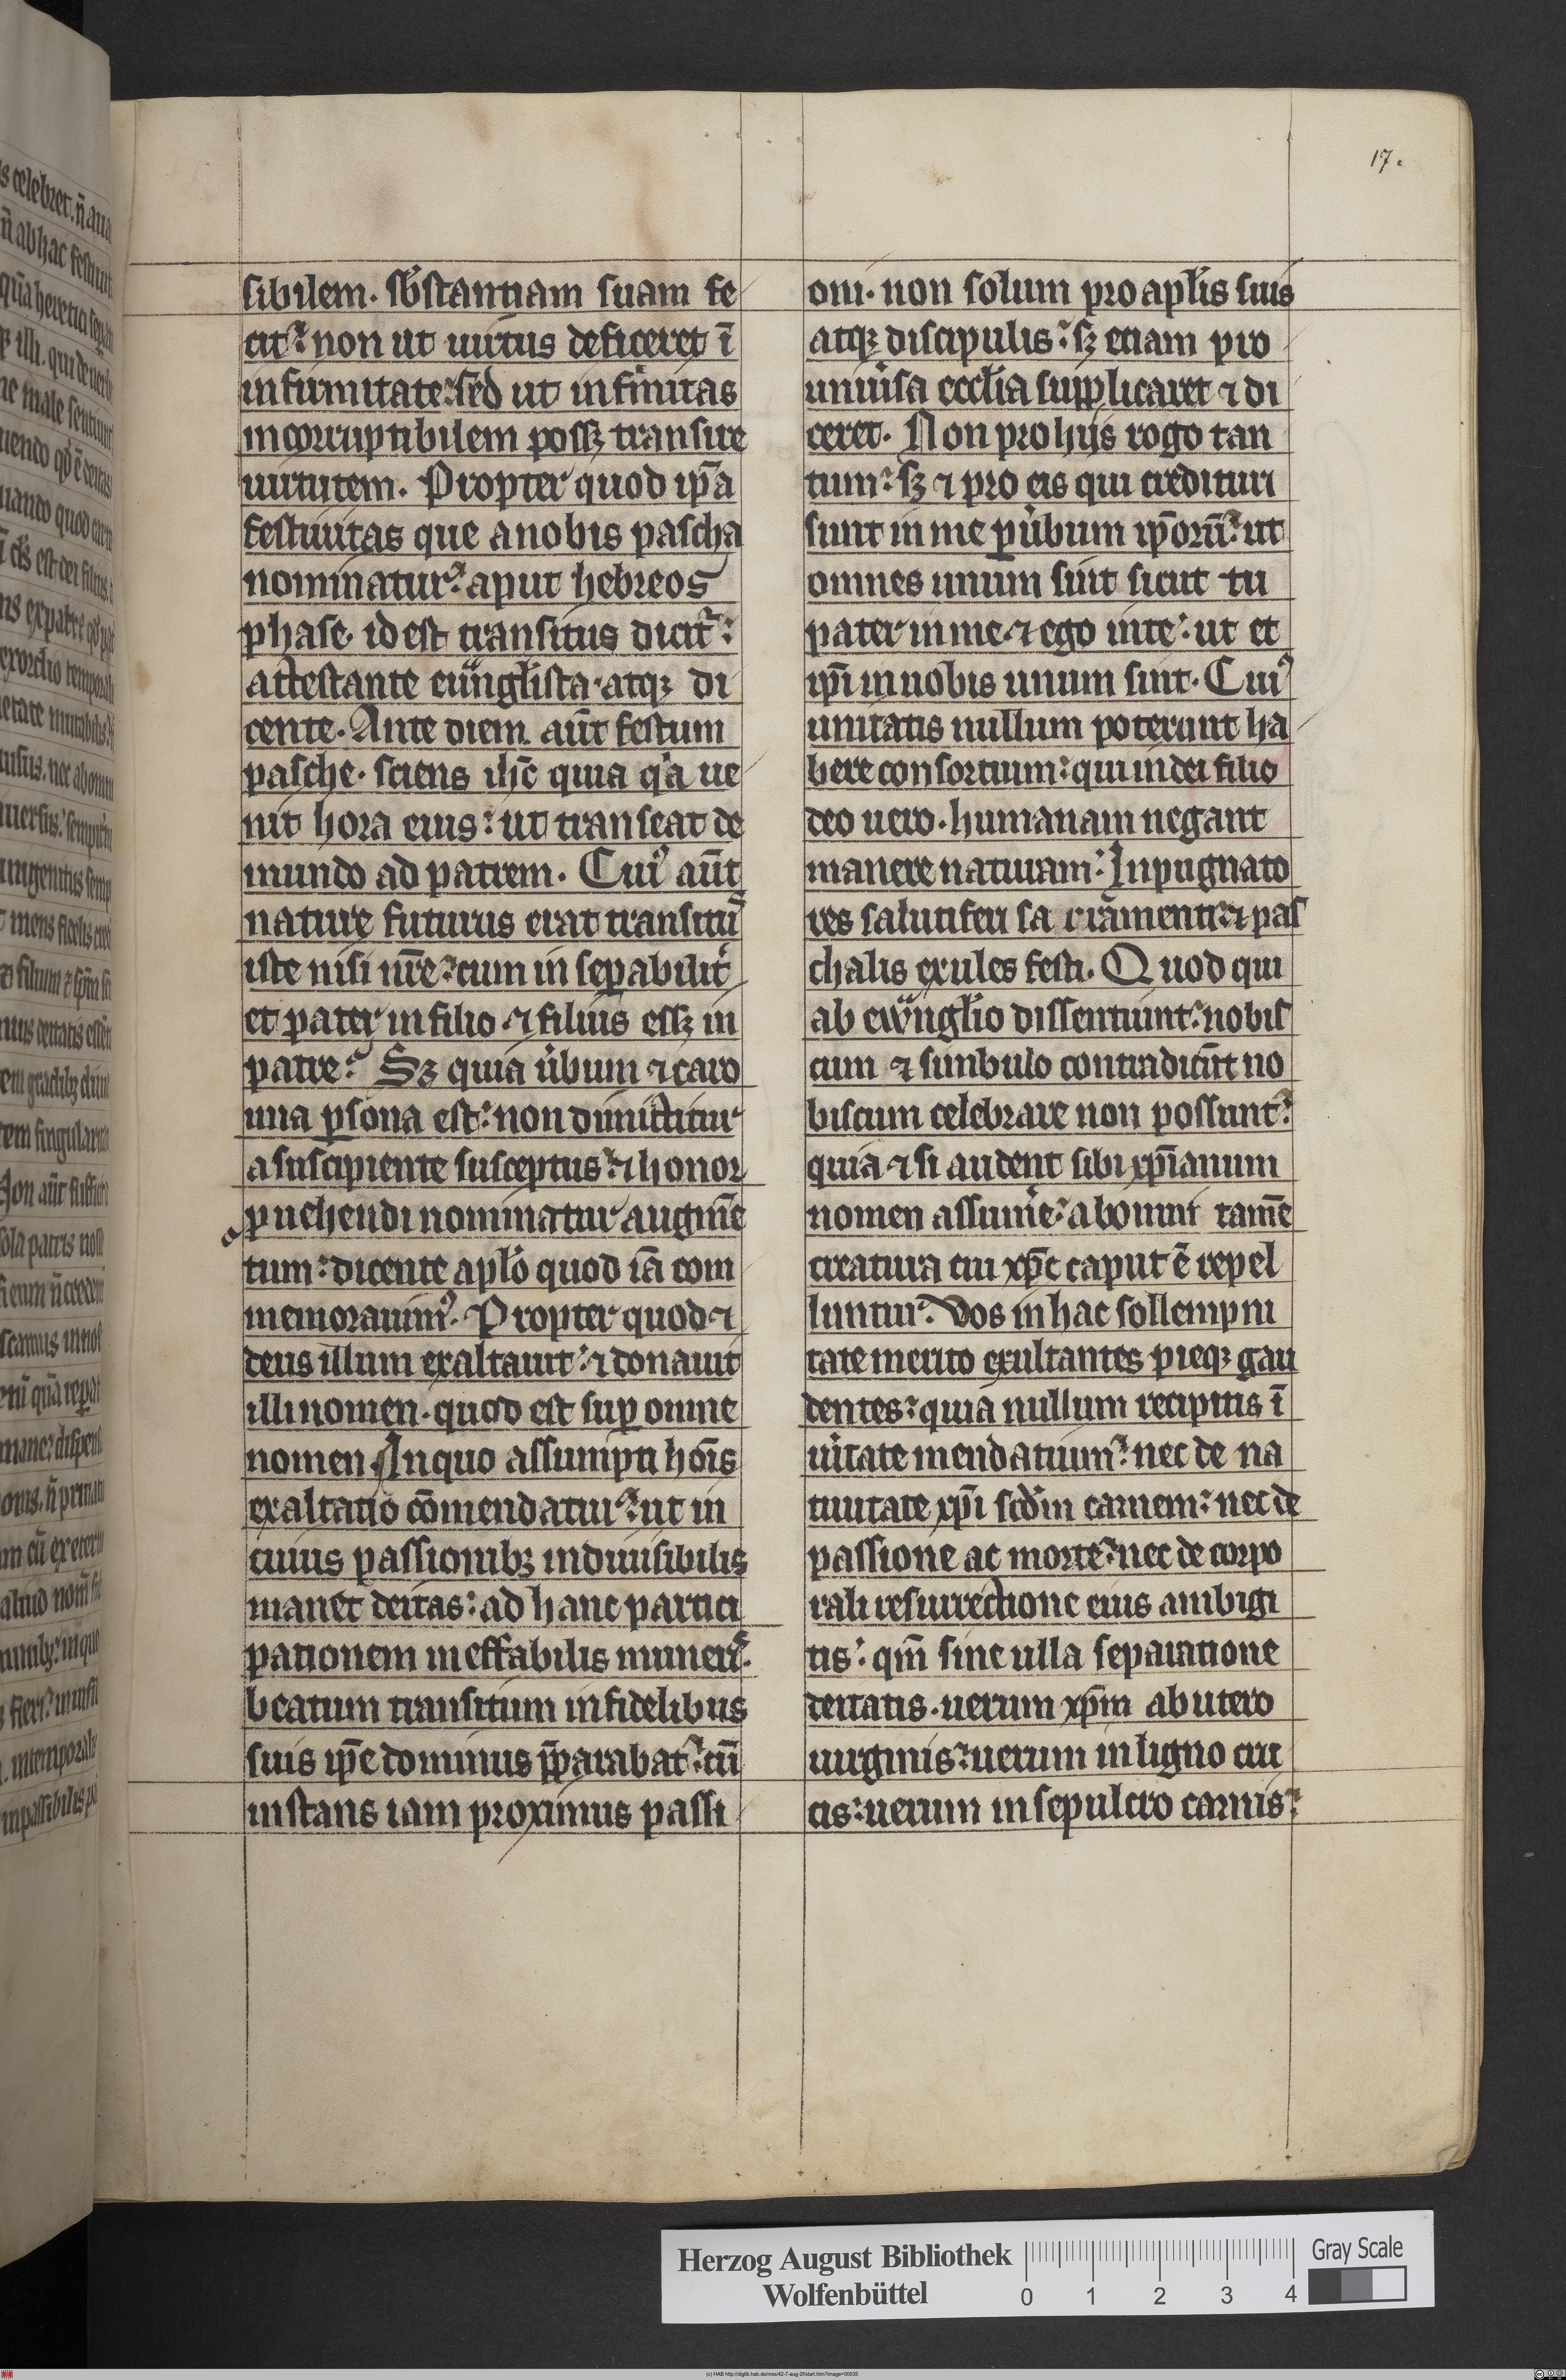 17.
sibilem. sb̾stantiam suam fe
cit: non ut uirtus deficeret ī
infirmitate: sed ut infirmitas
incorruptibilem possꝫ transire
uirtutem. Propter quod ip̄a
festiuitas que a nobis pascha
nominatur: aput hebreos
phase. id est transitus dicit᷑:
attestante euuͣngl̄ista. atqꝫ di
cente. Ante diem aūt festum
pasche. sciens ih̄c quia qͥa ue
nit hora eius: ut transeat de
mundo ad patrem. Cuiꝰ aūt
nature futurus erat transitꝰ
iste nisi nr̄e: cum inseꝑabilit̾
et pater in filio ⁊ filius essꝫ in
patre: Sꝫ quia u̾bum ⁊ caro
una ꝑsona est: non diuiditur
a suscipiente susceptus: ⁊ honor
ꝓuehendi nominatur augm̄e
tum: dicente apl̄o quod iā com
memorauimꝰ. Propter quod ⁊
deus illum exaltauit: ⁊ donauit
illi nomen. quod est suꝑ omne
nomen. In quo assumpti hoīs
exaltatio cōmendatur: ut in
cuius passionibꝫ indiuisibilis
manet deitas: ad hanc partici
pationem ineffabilis muneris.
beatum transitum in fidelibus
suis ip̄e dominus p̄parabat: cū
instans iam proximus passi
oni. non solum pro apl̄is suis
atqꝫ discipulis: sꝫ etiam pro
uniu̾sa eccl̄ia supplicaret ⁊ di
ceret. Non pro hijs rogo tan
tum: sꝫ ⁊ pro eis qui credituri
sunt in me ꝑ u̾bum ip̄orū: ut
omnes unum sint sicut tu
pater in me ⁊ ego in te: ut et
ip̄i in nobis unum sint. Cuiꝰ
unitatis nullum poterunt ha
bere consortium: qui in dei filio
deo uero. humanam negant
manere naturam: Inpugnato
res salutiferi sacramenti: ⁊ pas
chalis exules festi. Quod qui
ab ewͣngl̄io dissentiunt: nobis
cum ⁊ simbulo contradicūt no
biscum celebrare non possunt:
quia ⁊ si audent sibi xp̄ianum
nomen assume̾: ab omni tam̄e
creatura cui xp̄c caput ē repel
luntur. Vos in hac sollempni
tate merito exultantes pieqꝫ gau
dentes: quia nullum recipitis ī
u̾itate mendatium: nec de na
tiuitate xp̄i scd̄m carnem: nec de
passione ac morte: nec de corpo
rali resurrectione eius ambigi
tis: qm̄ sine ulla separatione
deitatis. uerum xp̄m ab utero
uirginis: uerum in ligno cru
cis: uerum in sepulcro carnis:
Herzog August Bibliothek
Wolfenbüttel
0 1 2 3 4
Gray Scale
(c) HAB http://diglib.hab.de/mss/42-7-aug-2f/start.htm?image=00035